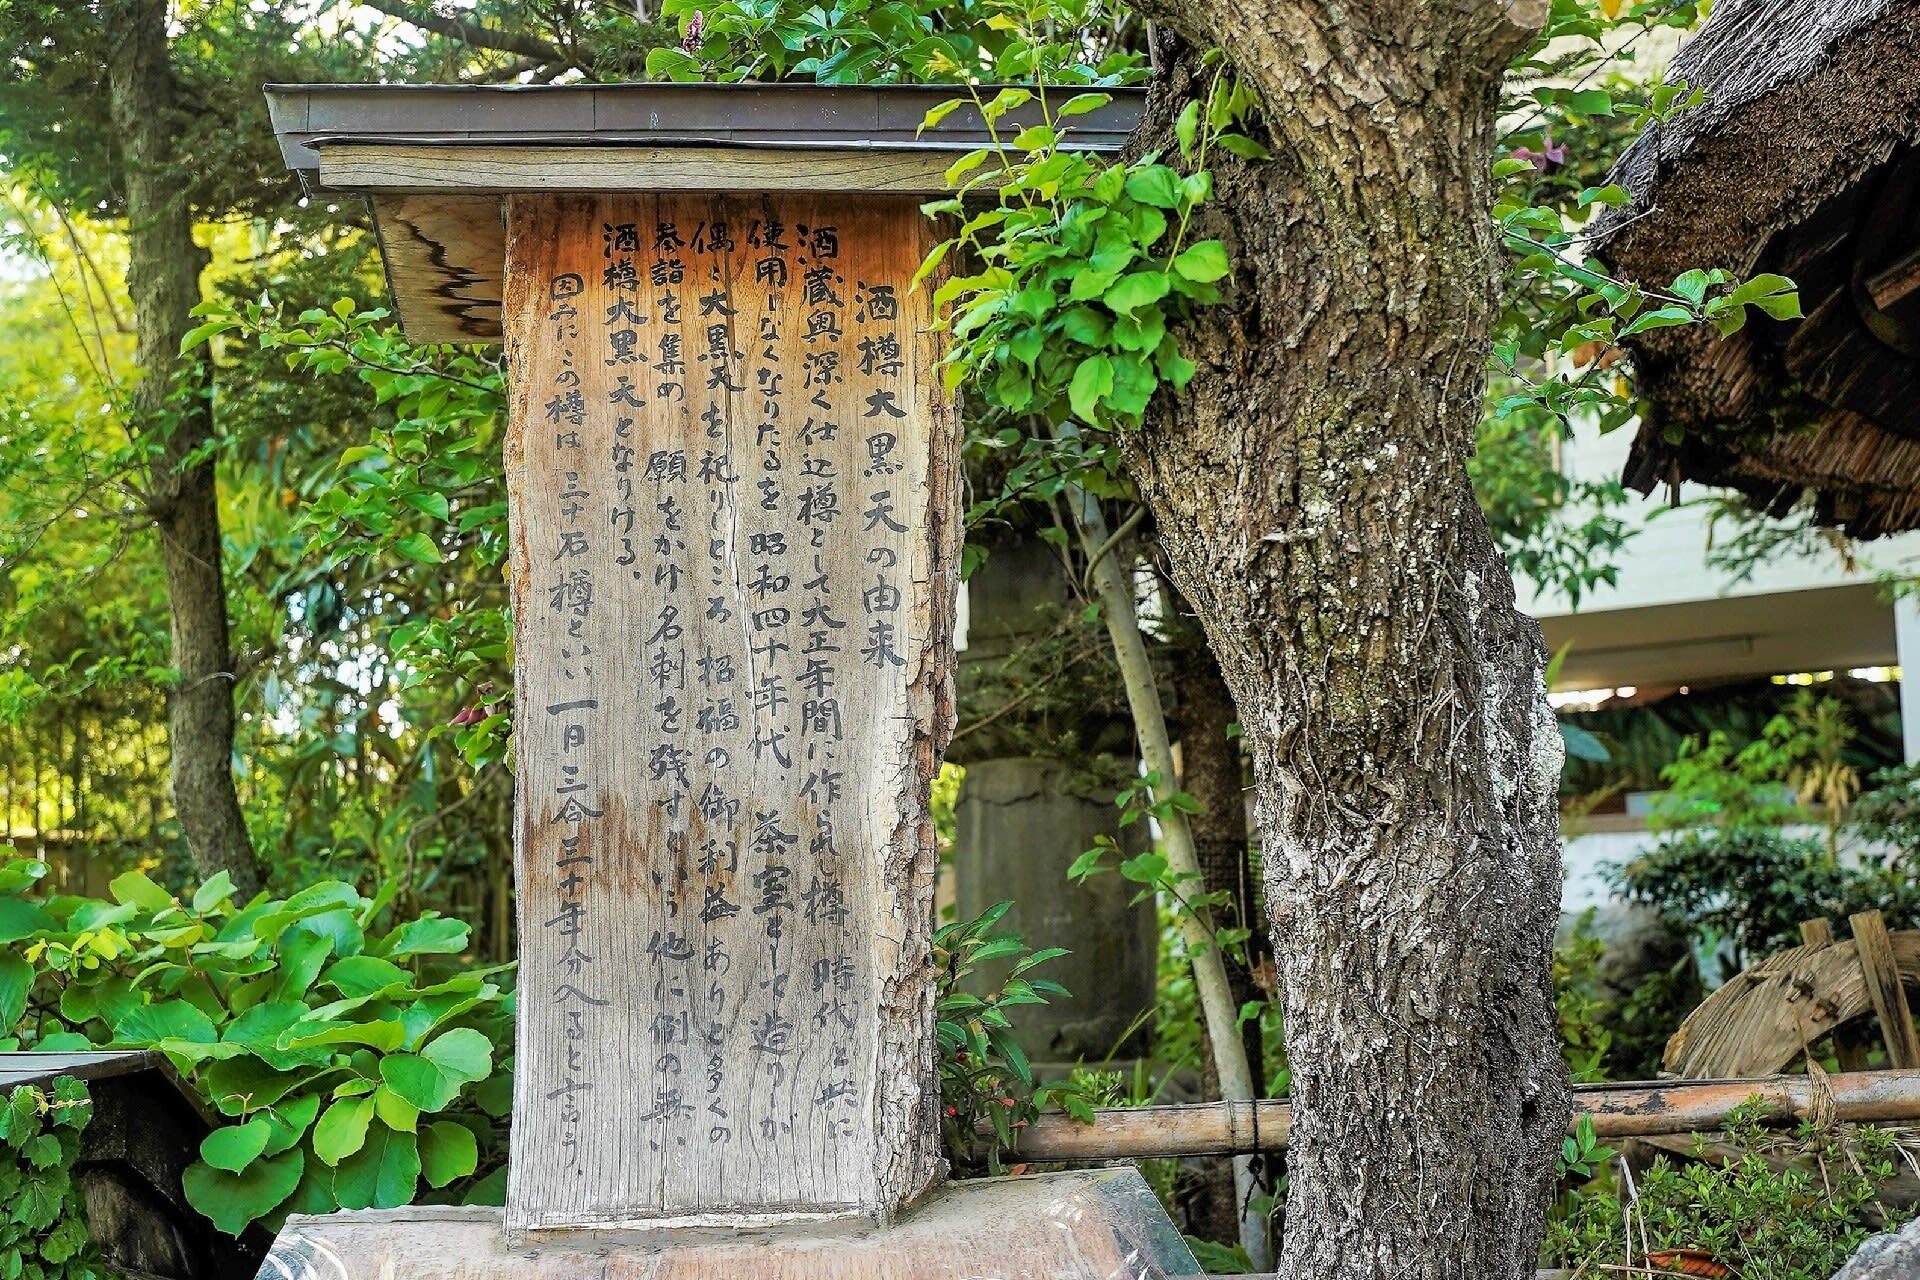 酒樽大黒天の由来
酒蔵奥深く仕込樽として大正年間に作られし樽、時代と共に
使用しなくなりたるを 昭和四十年代、茶室として造りしが
偶々大黒天を祀りしところ 招福の御利益ありと多くの
参詣を集め、願をかけ名刺を残すという他に例の無い
酒樽大黒天となりける。
因みにこの樽は 三十石樽といい 一日三合三十年分入ると言う。